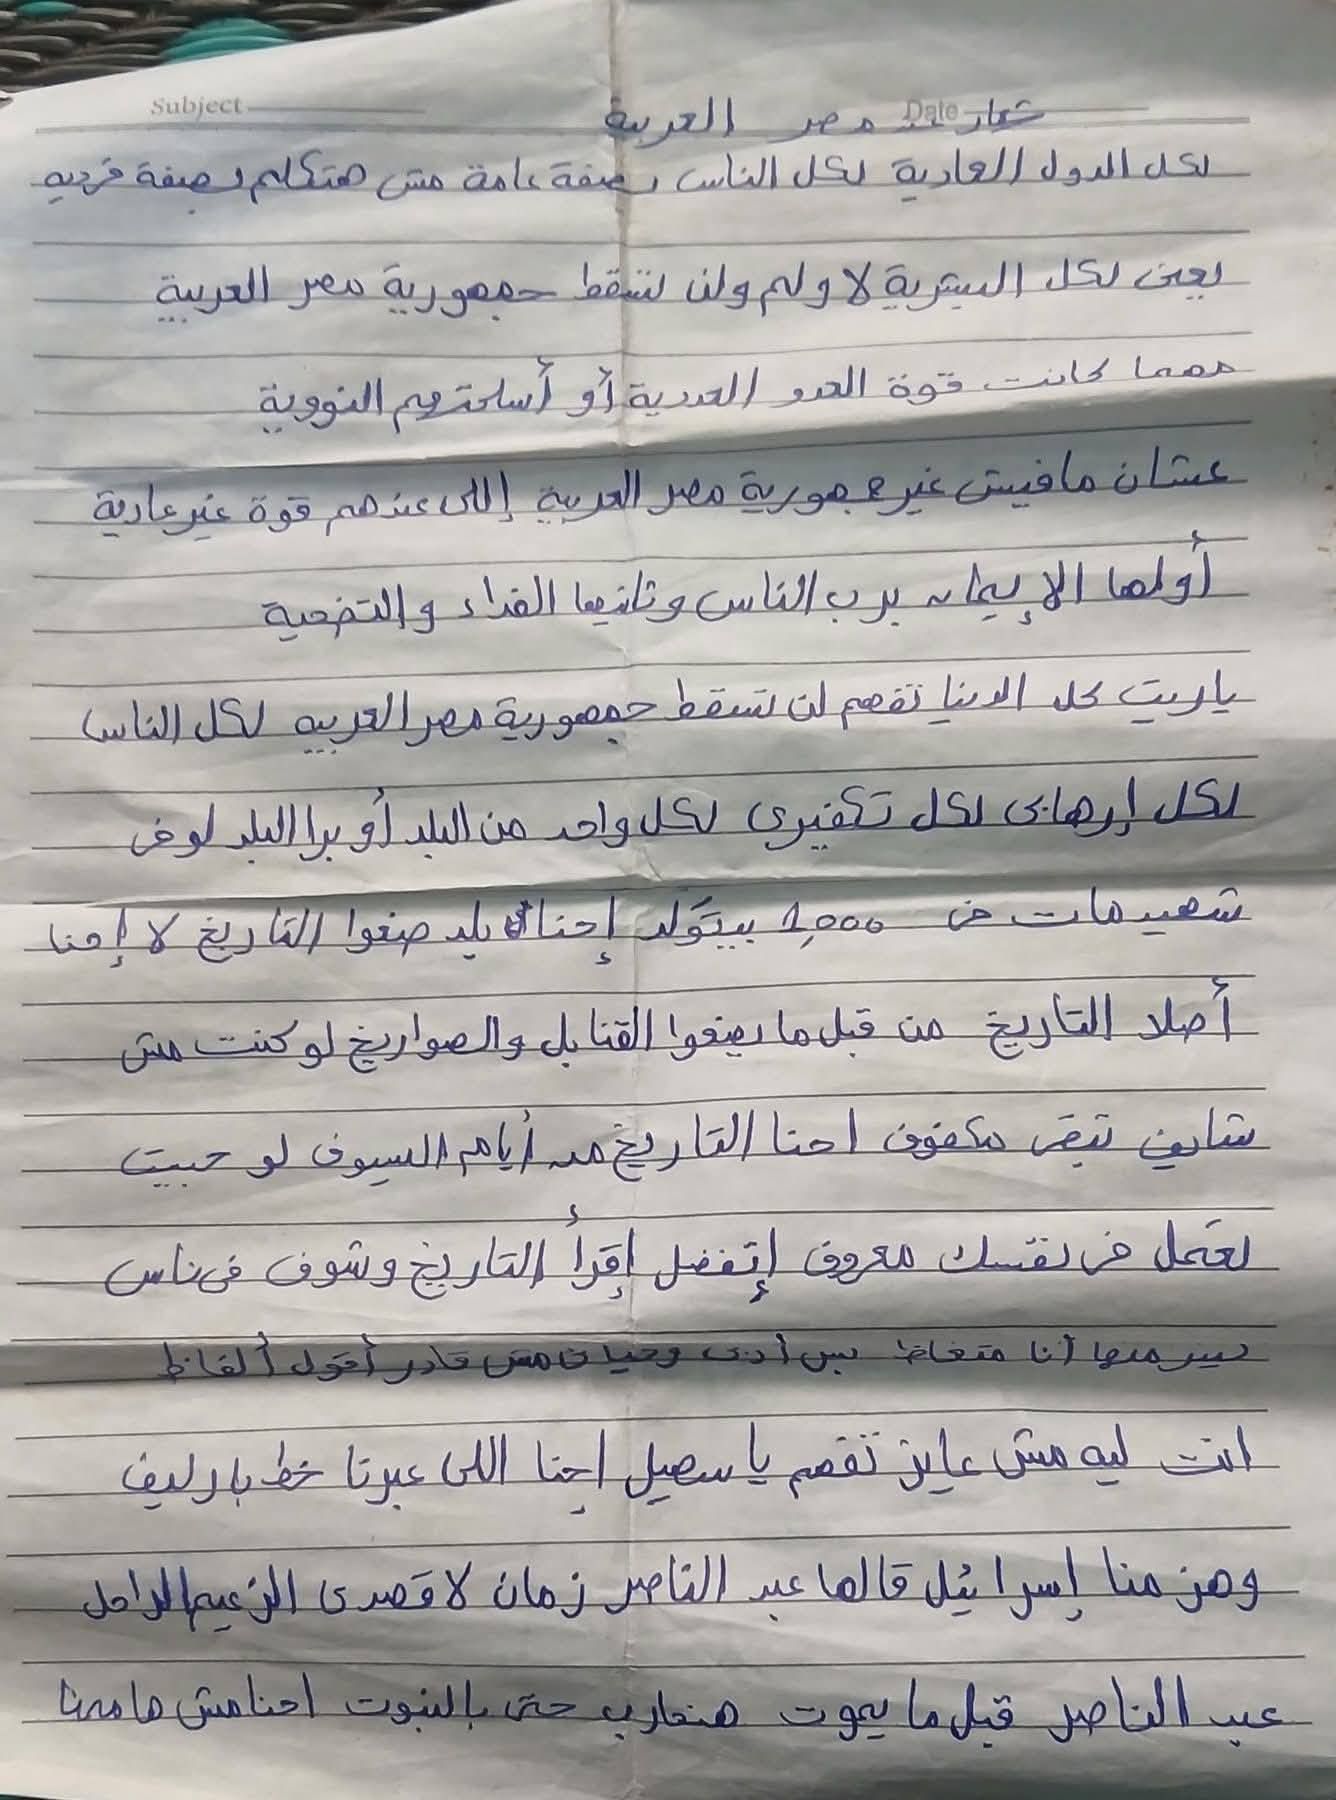 Subject
Date
شعار مصر العربية
لكل الدول العادية لكل الناس بصفة عامة مش هتكلم بصفة فرديه
يعنى لكل البشرية لا ولم ولن تسقط جمهورية مصر العربية
مهما كانت قوة العدو العددية أو أسلحتهم النووية
عشان مافيش غير جمهورية مصر العربية إللى عندهم قوة غير عادية
أولها الإيمان برب الناس وثانيها الفداء والتضحية
ياريت كل الدنيا تفهم لن تسقط جمهورية مصر العربيه لكل الناس
لكل إرهابى لكل تكفيرى لكل واحد من البلد أو برا البلد لو فى
شهيد مات فى 1,000 بيتولد إحنا بلد صنعوا التاريخ لا إحنا
أصلا التاريخ من قبل ما يصنعوا القنابل والصواريخ لو كنت مش
شايف تبقى مكفوف احنا التاريخ من أيام السيوف لو حبيت
تعمل فى نفسك معروف إتفضل إقرأ التاريخ وشوف فى ناس
أنا متغاظ بس أدبى وحيائى مش قادر أقول ألفاظ
انت ليه مش عايز تفهم يا سهيل إحنا اللى عبرنا خط بارليف
وهزمنا إسرائيل قالها عبد الناصر زمان لا قصدى الزعيم الراحل
عبد الناصر قبل ما يموت هنحارب حتى بالنبوت احنا مش هاممنا